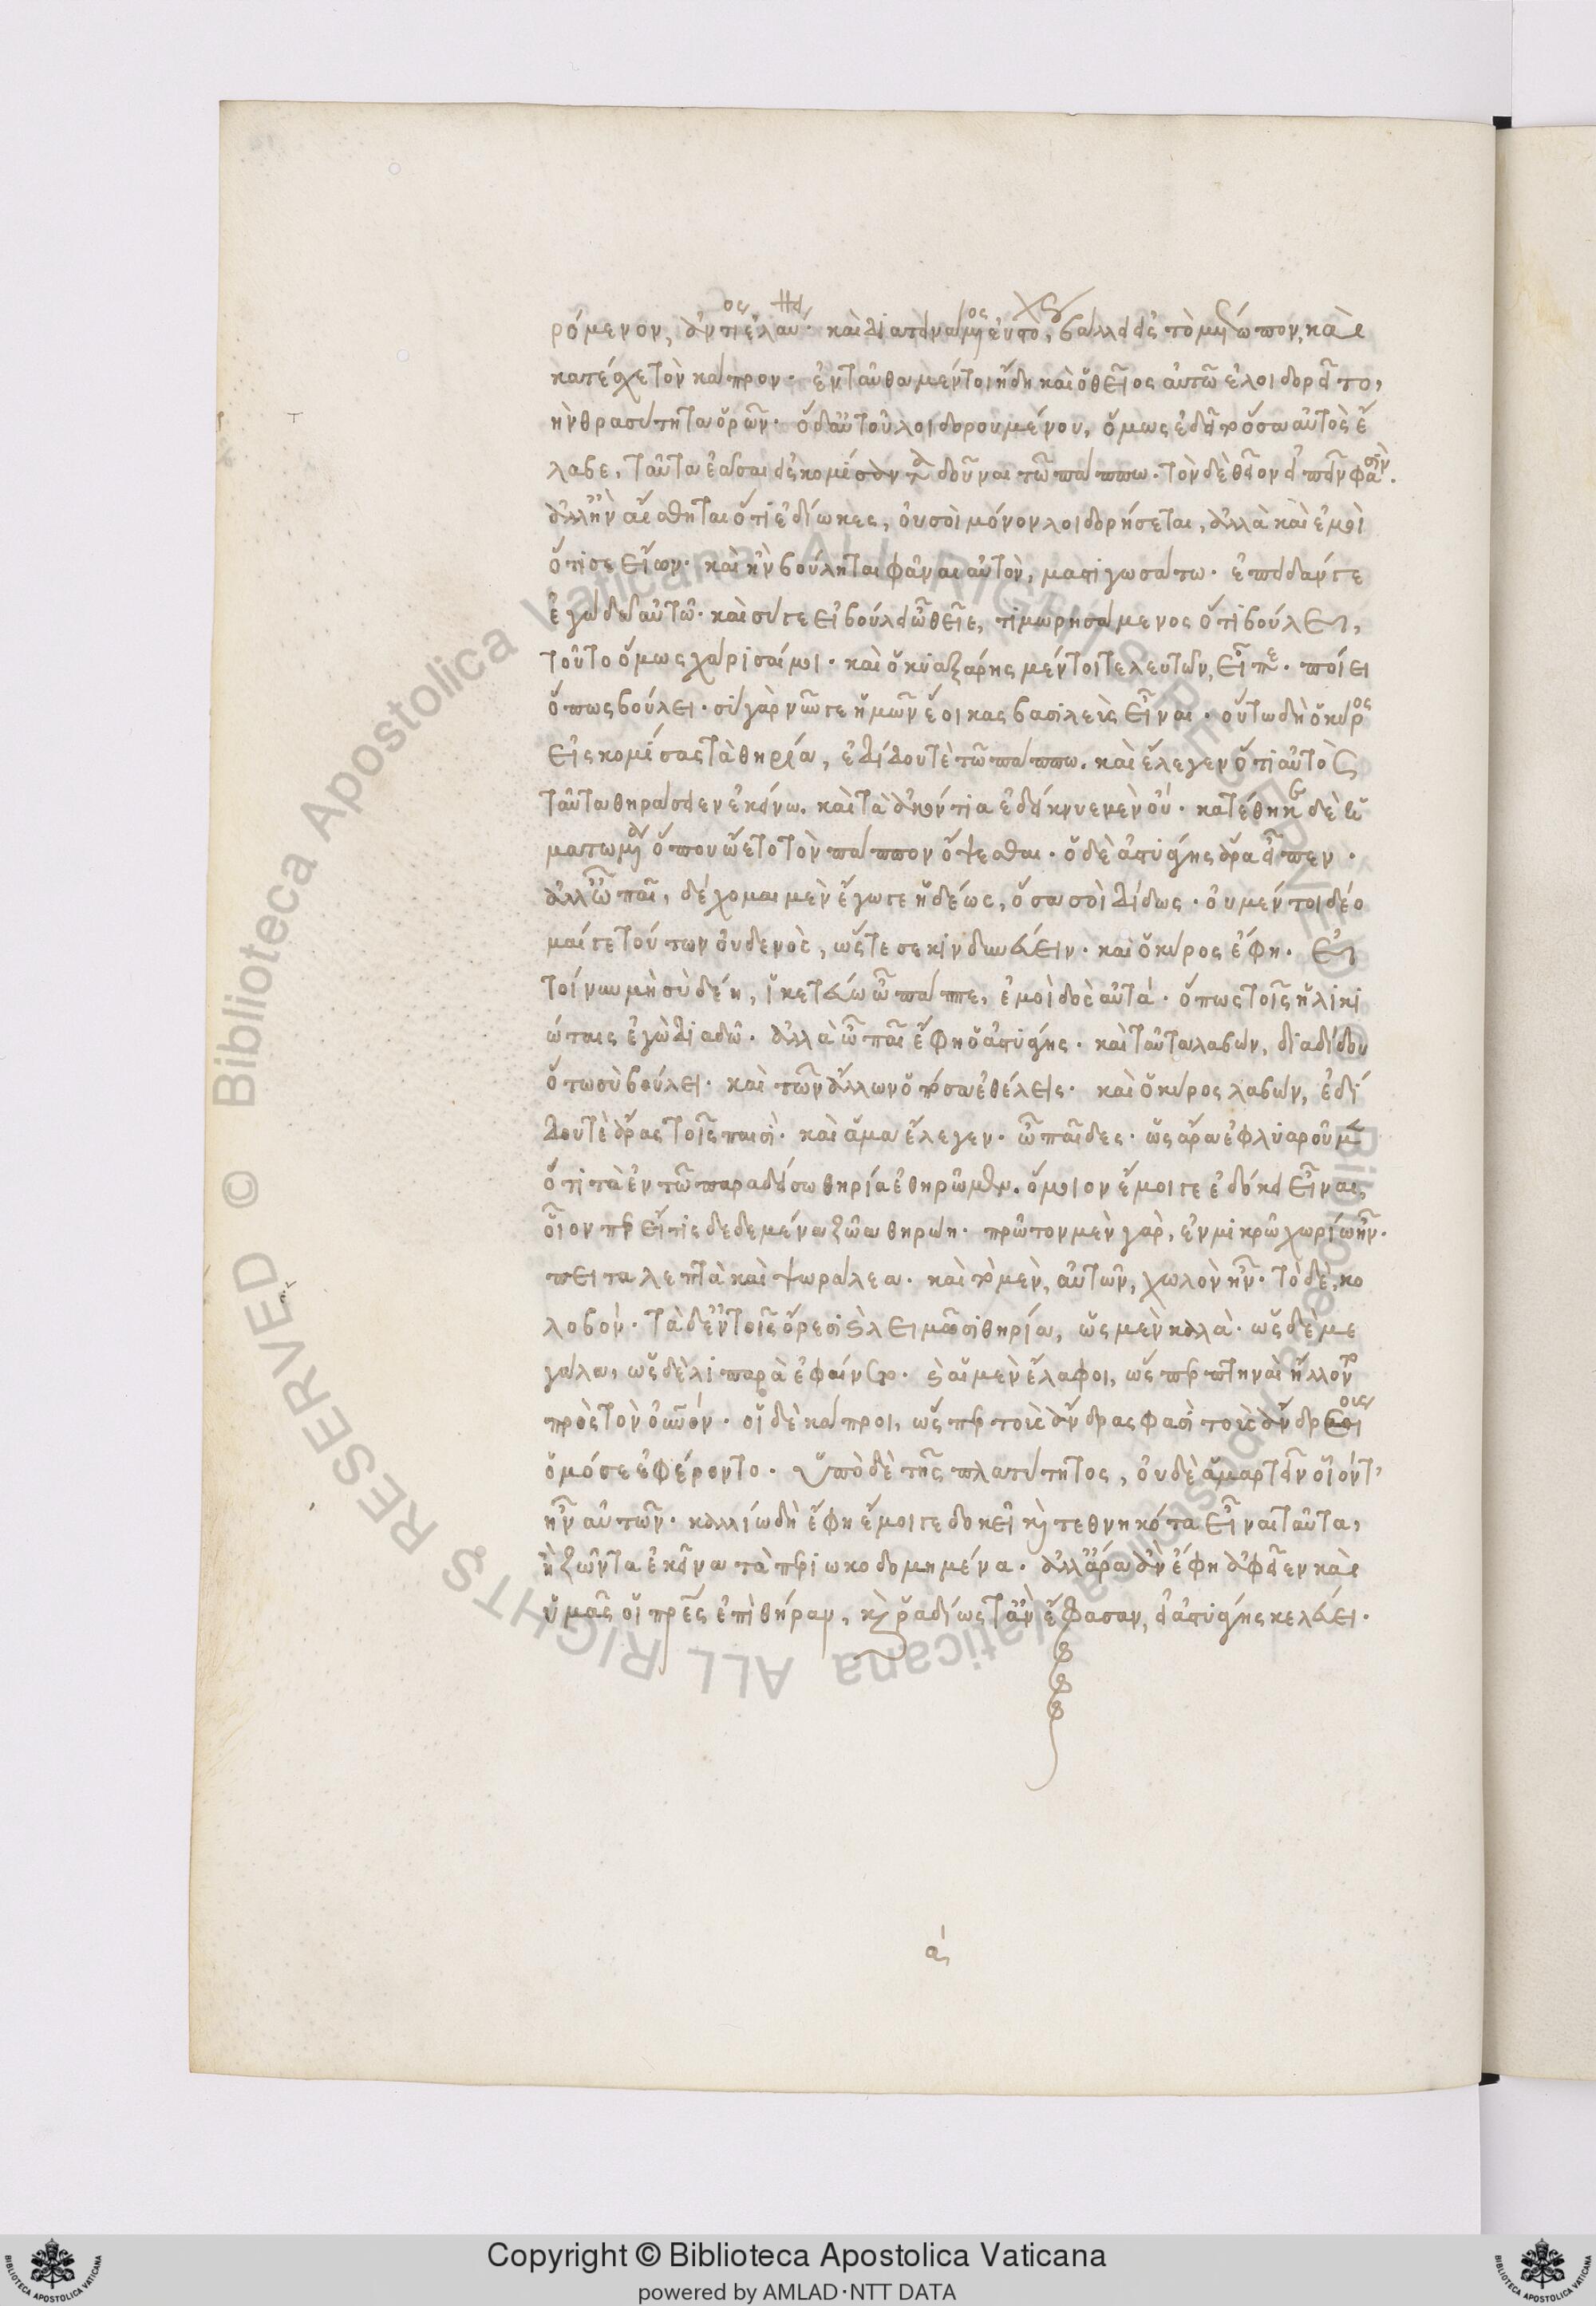 ρόμενον, ἀντίος ἤλαυνε· καὶ διατεινάμενος εὐστόχως, βάλλει εἰς τὸ μέτωπον, καὶ
κατέσχε τὸν κάπρον· ἐνταῦθα μέντοι ἤδη καὶ ὁ θεῖος αὐτῷ ἐλοιδορεῖτο,
ὴν θρασύτητα ὁρῶν· ὁ δ' αὐτοῦ λοιδορουμένου, ὅμως ἐδεῖτο ὅσα αὐτὸς ἔ
λαβε, ταῦτα ἐᾶσαι εἰσκομίσαντα δοῦναι τῷ πάππῳ. τὸν δὲ θεῖον εἰπεῖν φασίν.
ἀλλ' ἢν αἴσθηται ὅτι ἐδίωκες, οὐ σοὶ μόνον λοιδορήσεται, ἀλλὰ καὶ ἐμοὶ
ὅτι σε εἴων· καὶ ἢν βούληται φάναι αὐτὸν, μαστιγωσάτω· ἐπειδάν γε
ἐγὼ δῶ αὐτῷ· καὶ σύ γε εἰ βούλει ὦ θεῖε, τιμωρησάμενος ὅτι βούλει,
τοῦτο ὅμως χάρισαί μοι· καὶ ὁ κυαξάρης μέντοι τελευτῶν, εἶπε· ποίει
ὅπως βούλει· σὺ γὰρ νῦν γε ἡμῶν ἔοικας βασιλεὺς εἶναι· οὕτω δὴ ὁ κῦρος
εἰσκομίσας τὰ θηρία, ἐδίδου τὲ τῷ πάππῳ. καὶ ἔλεγεν ὅτι αὐτὸς
ταῦτα θηράσειεν ἐκείνῳ. καὶ τὰ ἀκόντια ἐδείκνυε μὲν οὔ· κατέθηκε δὲ αἱ
ματωμένα ὅπου ᾤετο τὸν πάππον ὄψεσθαι· ὁ δὲ ἀστυάγης ἄρα εἶπεν·
ἀλλ' ὦ παῖ, δέχομαι μὲν ἔγωγε ἡδέως, ὅσα σοὶ δίδως· οὐ μέντοι δέο
μαί γε τούτων οὐδενὸς, ὥστε σε κινδυνεύειν· καὶ ὁ κῦρος ἔφη· εἰ
τοίνυν μὴ σὺ δέῃ, ἱκετεύω ὦ πάππε, ἐμοὶ δὸς αὐτά· ὅπως τοῖς ἡλικι
ώταις ἐγὼ διαδῶ· ἀλλὰ ὦ παῖ ἔφη ὁ ἀστυάγης· καὶ ταῦτα λαβὼν, διαδίδου
ὅτῳ σὺ βούλει· καὶ τῶν ἄλλων ὁπόσα ἐθέλεις· καὶ ὁ κῦρος λαβὼν, ἐδί
δου τὲ ἄρας τοῖς παισὶ· καὶ ἅμα ἔλεγεν· ὦ παῖδες· ὡς ἄρα ἐφλυαροῦμεν
ὅτι τὰ ἐν τῷ παραδείσῳ θηρία ἐθηρῶμεν. ὅμοιον ἔμοιγε ἐδόκει εἶναι,
οἷον περ εἴ τις δεδεμένα ζῶα θηρῴη· πρῶτον μὲν γὰρ, ἐν μικρῷ χωρίῳ ἦν·
πειτα λεπτὰ καὶ ψωραλεα· καὶ τὸ μὲν, αὐτῶν, χωλὸν ἦν· τὸ δὲ, κο
λοβόν· τὰ δ' ἐν τοῖς ὄρεσι καὶ λειμῶσι θηρία, ὡς μὲν καλὰ· ὡς δὲ με
γάλα, ὡς δὲ λιπαρὰ ἐφαίνετο· καὶ αἱ μὲν ἔλαφοι, ὥσπερ πτηναὶ ἥλλοντο
πρὸς τὸν οὐρανόν· οἱ δὲ κάπροι, ὥσπερ τοὺς ἄνδρας φασὶ τοὺς ἀνδρείους
ὁμόσε ἐφέροντο· ὑπὸ δὲ τῆς πλατύτητος, οὐδὲ ἁμαρτεῖν οἷόντ'
ἦν αὐτῶν· καλλίω δὴ ἔφη ἔμοιγε δοκεῖ καὶ τεθνηκότα εἶναι ταῦτα,
ἢ ζῶντα ἐκεῖνα τὰ περιῳκοδομημένα· ἀλλ' ἄρα ἂν ἔφη ἀφεῖεν καὶ
ὑμᾶς οἱ πατέρες ἐπὶ θήραν, καὶ ῥᾳδίως τ' ἂν ἔφασαν, εἰ ἀστυάγης κελεύει·
α